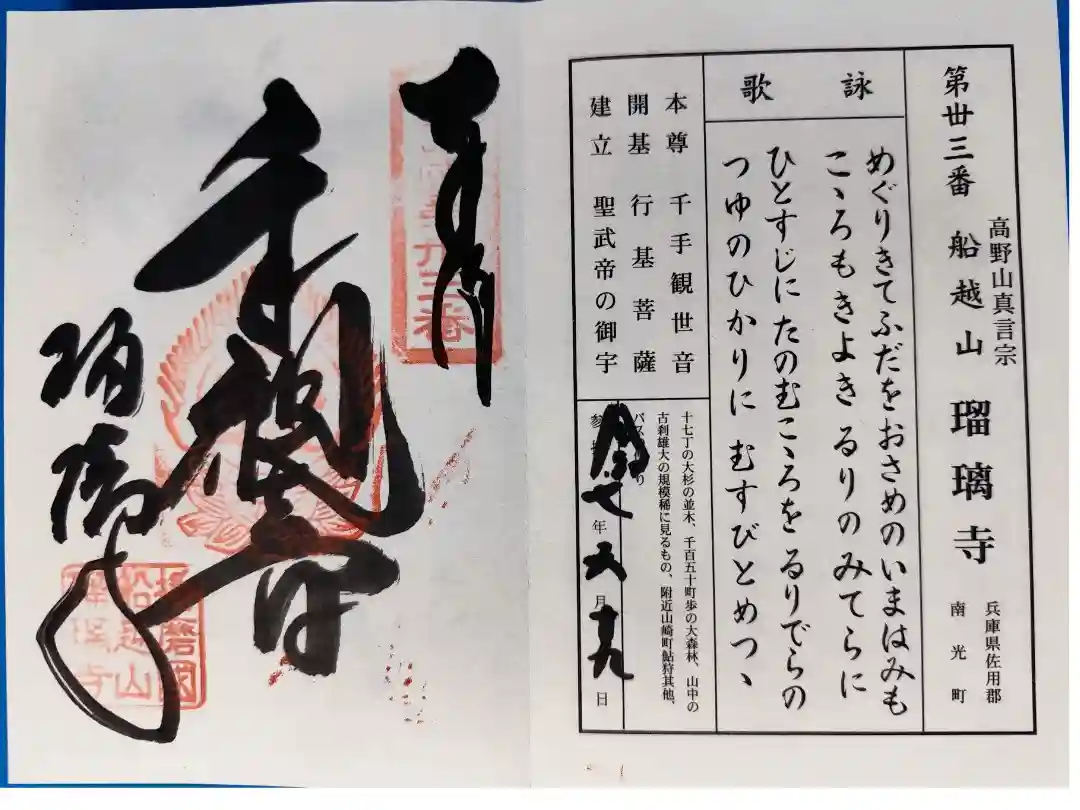 第丗三番 船越山 瑠璃寺
高野山真言宗
兵庫県佐用郡
南光町
詠歌
めぐりきてふだをおさめのいまはみも
こゝろもきよきるりのみてらに
ひとすじにたのむこゝろをるりでらの
つゆのひかりにむすびとめつゝ
本尊 千手観世音
開基 行基菩薩
建立 聖武帝の御宇
十七丁の大杉の並木、千百五十町歩の大森林、山中の
古刹雄大の規模稀に見るもの、附近山崎町鮎狩其他、
七年六月十九日
千手観音
瑠璃寺
播磨國
船越山
瑠璃寺